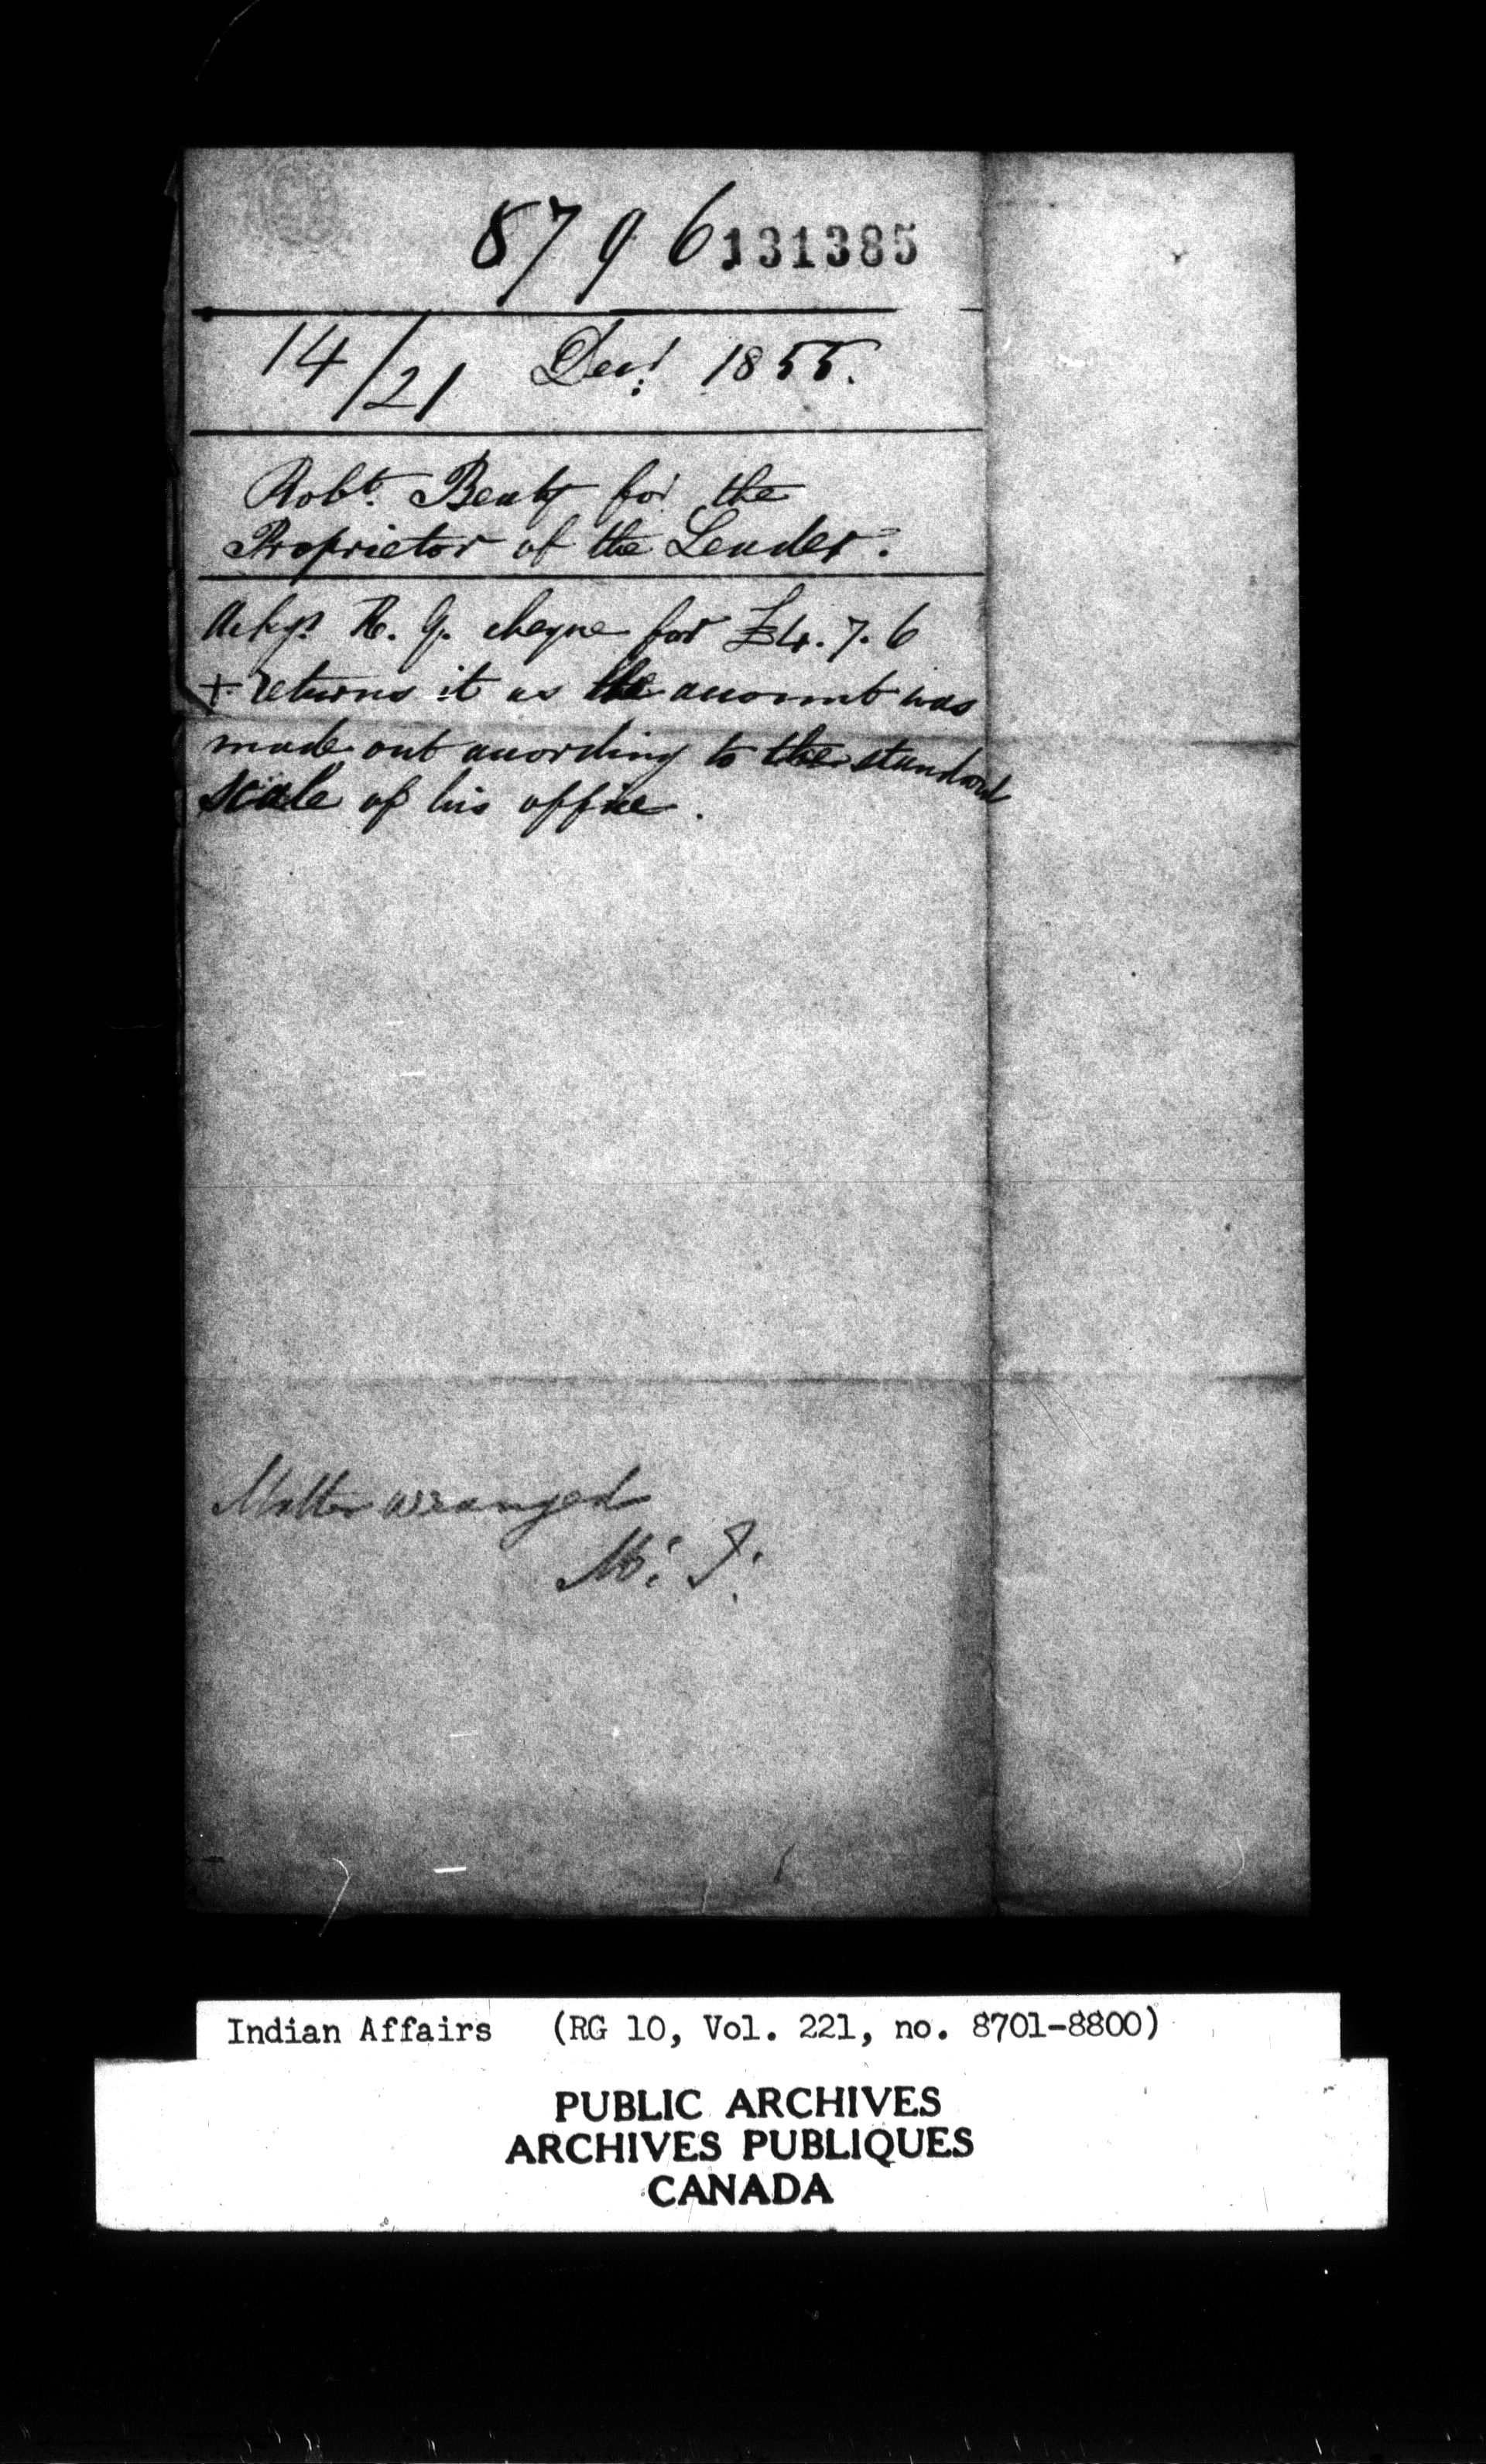 8796 131385
14/21 Decr. 1855.
Robt. Beaty for the
Proprietor of the Leader.
Ackgs. R. J. cheque for £4.7.6
+ returns it as the account was
made out according to the standard
scale of his office.
Matter arranged
Indian Affairs (RG 10, Vol. 221, no. 8701-8800)
PUBLIC ARCHIVES
ARCHIVES PUBLIQUES
CANADA